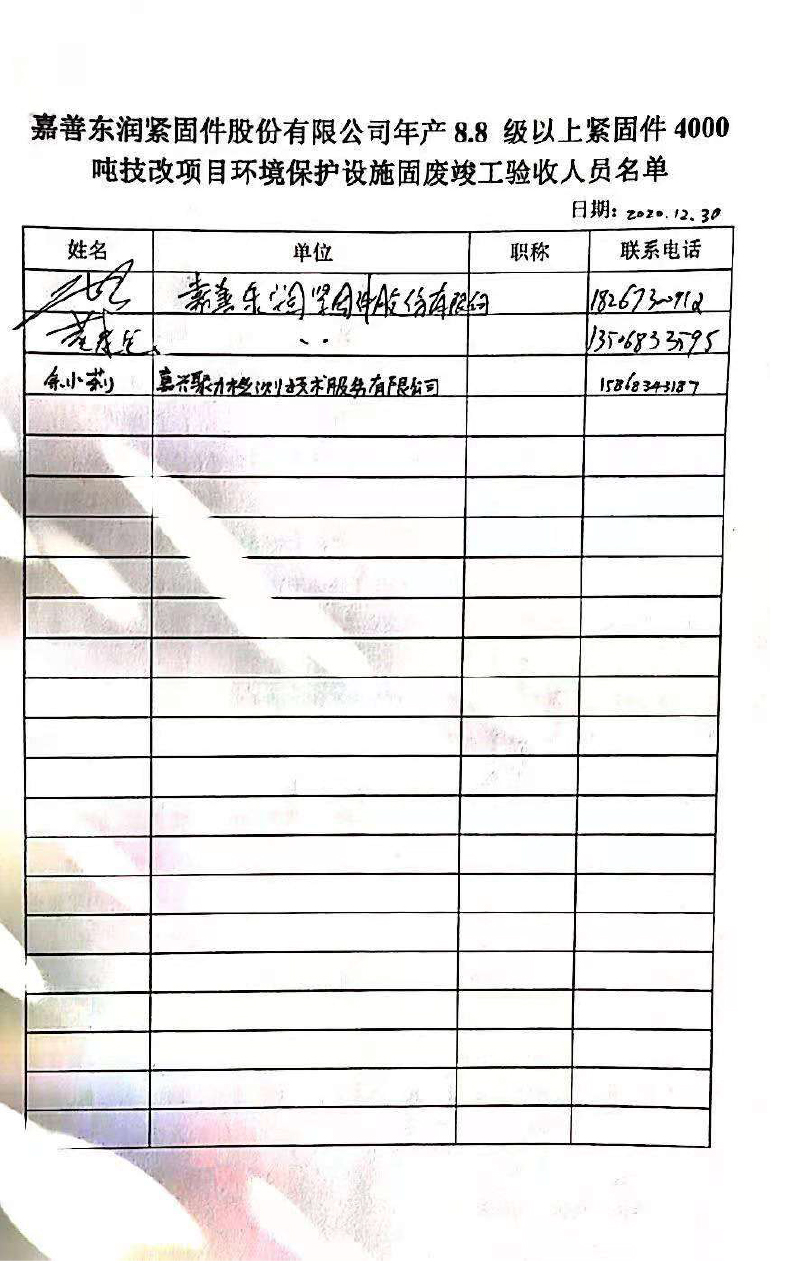 嘉善东润紧固件股份有限公司年产 8.8 级以上紧固件 4000
吨技改项目环境保护设施固废竣工验收人员名单
日期：2020.12.30
姓名 单位 职称 联系电话
嘉善东润紧固件股份有限公司
13506833595
余小莉 嘉兴聚力检测技术服务有限公司 15868343187